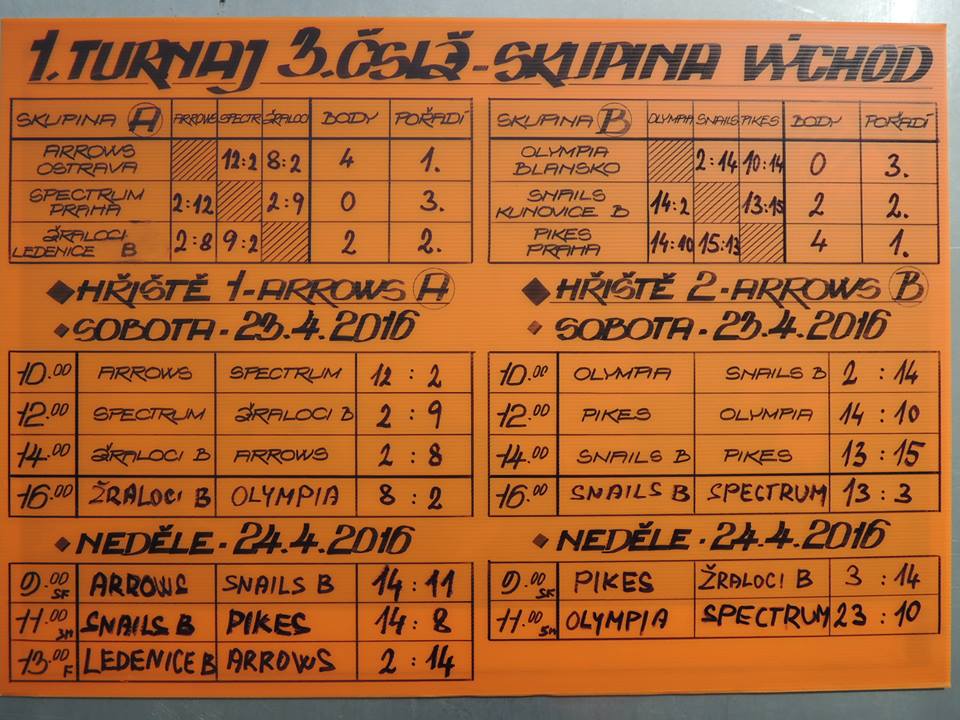 1. TURNAJ 3. ČSLS - SKUPINA VÝCHOD
SKUPINA A ARROWS SPECTR ŽRALOCI BODY POŘADÍ
ARROWS OSTRAVA 12:2 8:2 4 1.
SPECTRUM PRAHA 2:12 2:9 0 3.
ŽRALOCI LEDENICE B 2:8 9:2 2 2.
SKUPINA B OLYMPIA SNAILS PIKES BODY POŘADÍ
OLYMPIA BLANSKO 2:14 10:14 0 3.
SNAILS KUNOVICE B 14:2 13:15 2 2.
PIKES PRAHA 14:10 15:13 4 1.
HŘIŠTĚ 1-ARROWS A
SOBOTA - 23.4.2016
10.00 ARROWS SPECTRUM 12 : 2
12.00 SPECTRUM ŽRALOCI B 2 : 9
14.00 ŽRALOCI B ARROWS 2 : 8
16.00 ŽRALOCI B OLYMPIA 8 : 2
NEDĚLE - 24.4.2016
9.00 SF ARROWS SNAILS B 14 : 11
11.00 3M SNAILS B PIKES 14 : 8
13.00 F LEDENICE B ARROWS 2 : 14
HŘIŠTĚ 2-ARROWS B
SOBOTA - 23.4.2016
10.00 OLYMPIA SNAILS B 2 : 14
12.00 PIKES OLYMPIA 14 : 10
14.00 SNAILS B PIKES 13 : 15
16.00 SNAILS B SPECTRUM 13 : 3
NEDĚLE - 24.4.2016
9.00 SF PIKES ŽRALOCI B 3 : 14
11.00 5M OLYMPIA SPECTRUM 23 : 10